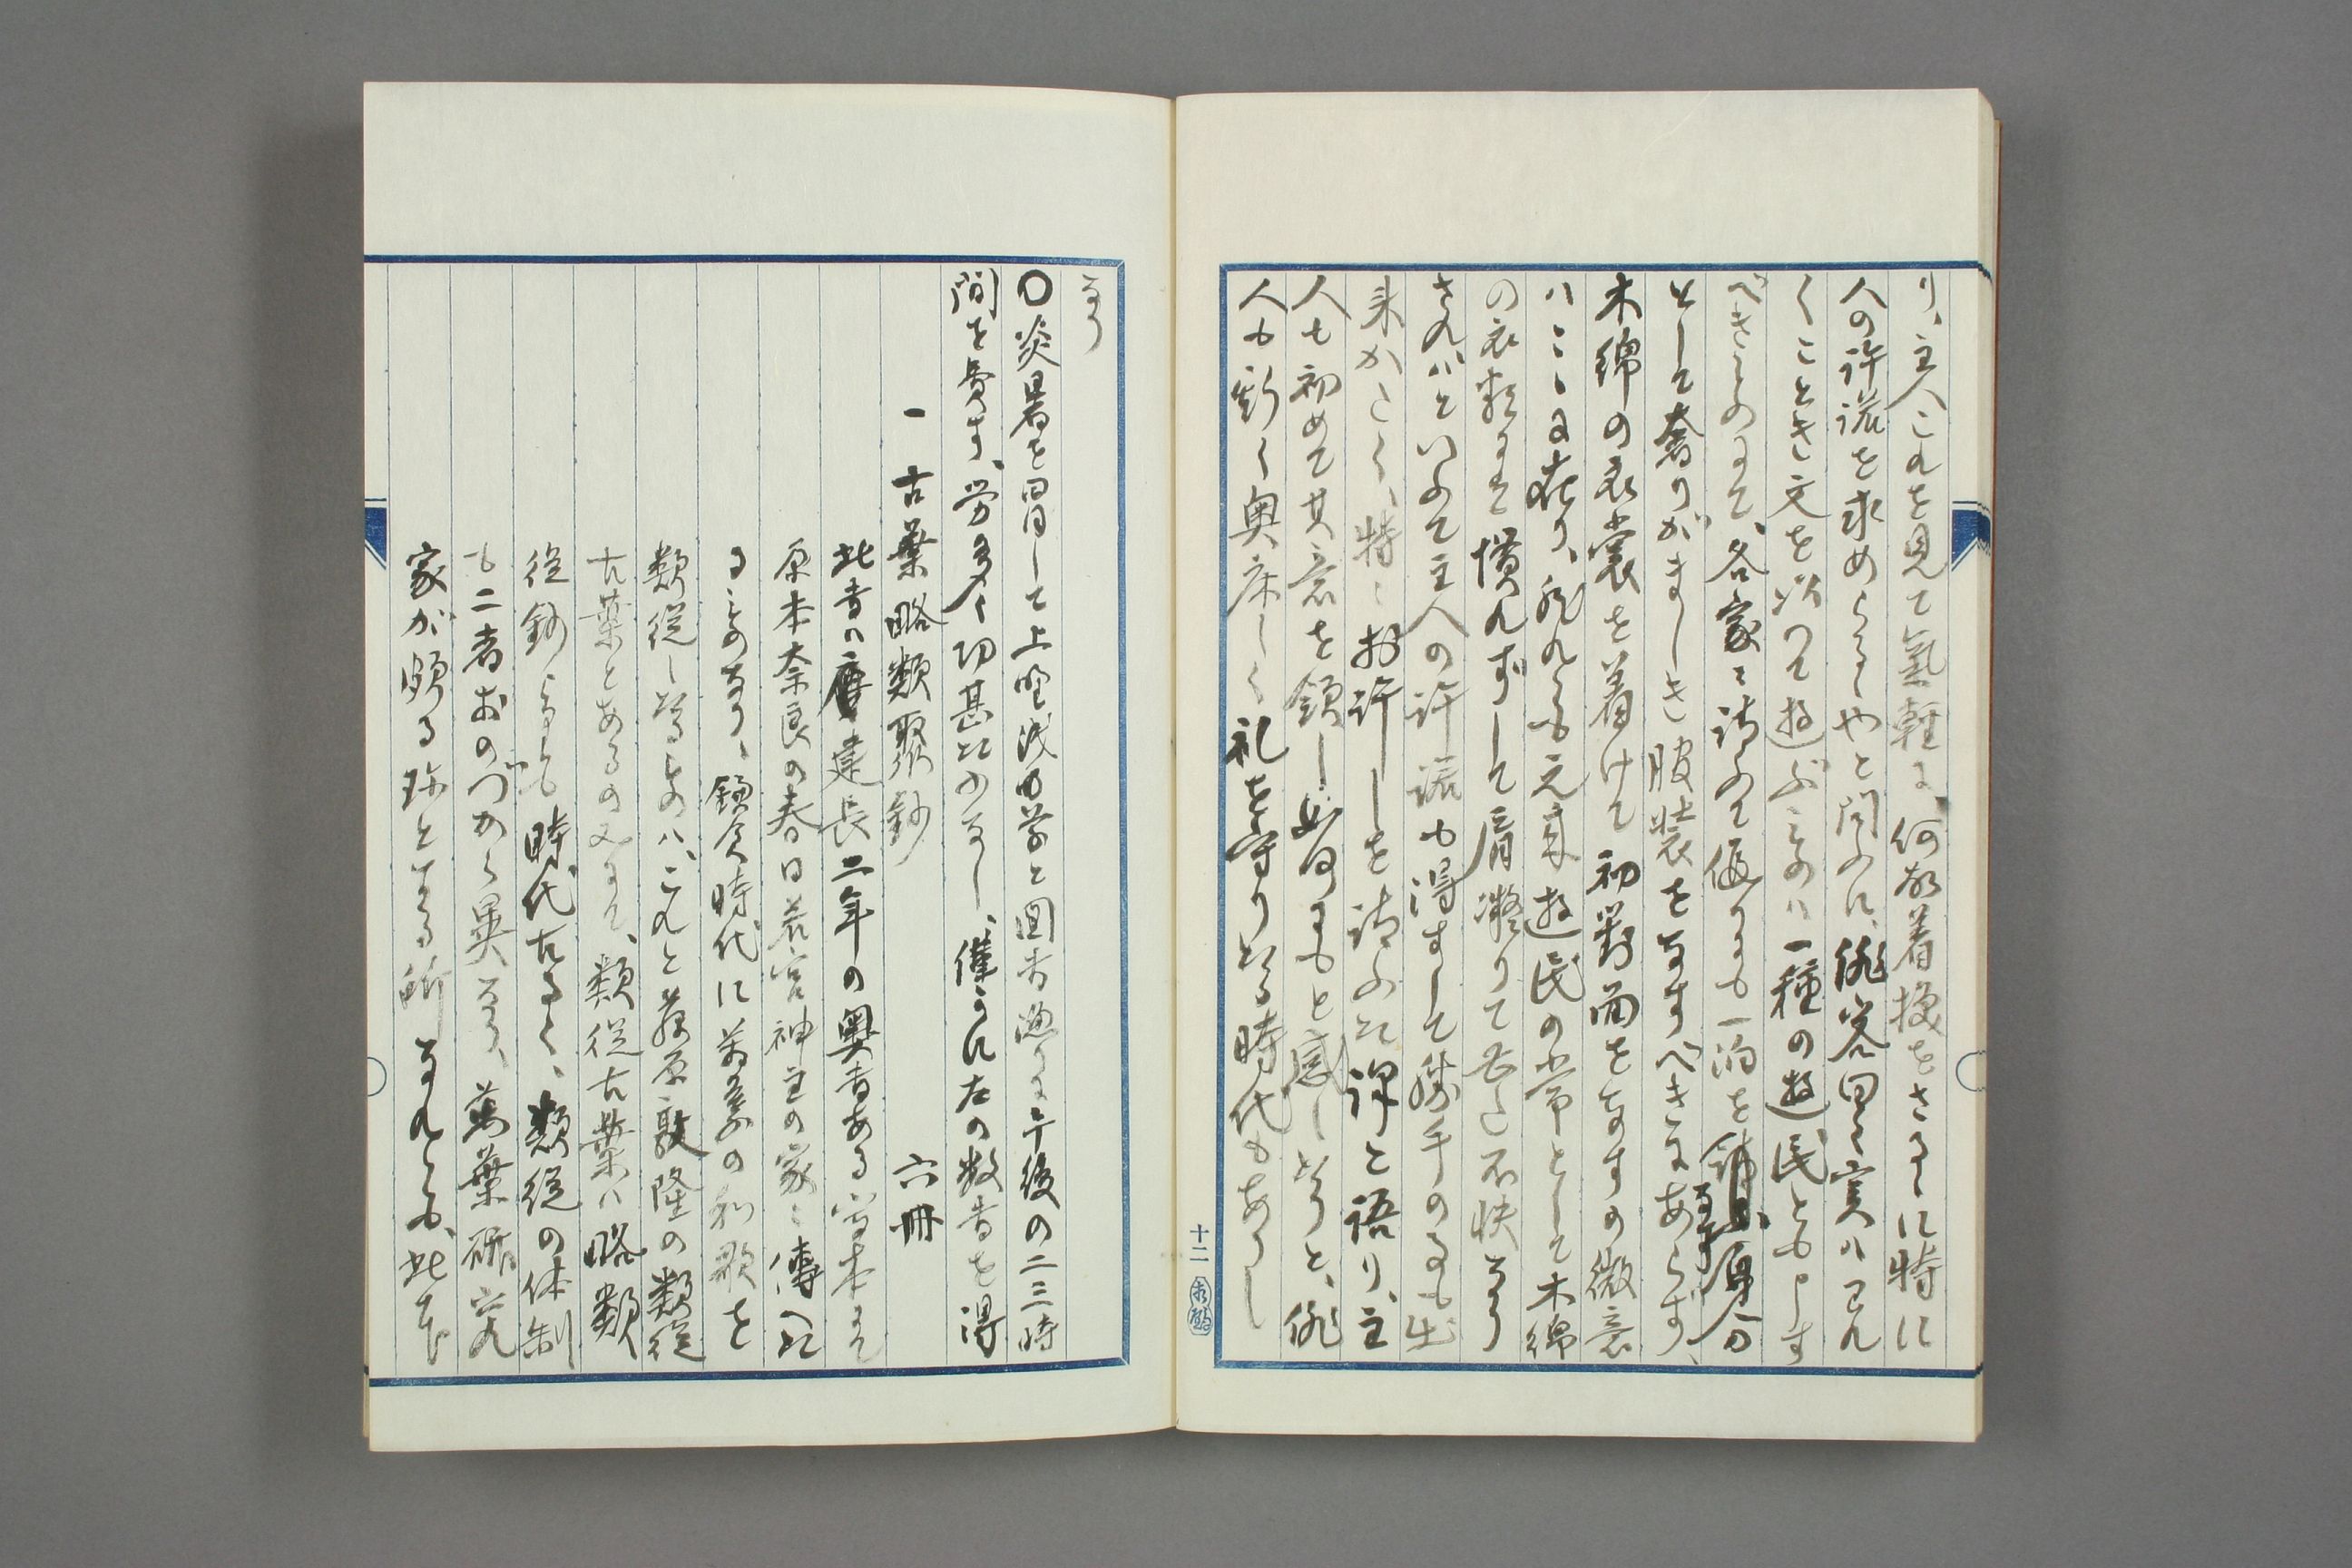 り、主人これを見て氣軽に、何故着換をさるゝに特に
人の許諾を求めらるゝやと問ふに、俳客曰く実ハわれ
くことき文を以つて遊ぶものハ一種の遊民とも申す
べきものにて、各家に請ふて仮りにも一泊を
として奢りがましき服装をなすべきにあらず、
木綿の衣裳を着けて初対面をなすの微意
ハこゝに在り、然れども元来遊民の常として木綿
の衣類にて慣れずして肩凝りて甚だ不快なり
されハといふて主人の許諾も得ずして勝手のまも出
来かたく、特に お許しを請ふた訳と語り、主
人も初めて其意を領し如何にもと感したりと、俳
人も斯く奥床しく礼を守りたる時代もありし
十二
なり
〇炎暑を冒して上野浅 と図書 に午後の二三時
間を費す、労多く功甚た少なし、僅かに左の数書を得
一 古葉略類聚鈔 六冊
此書ハ 建長二年の奥書ある写本にて
原本奈良の春日若宮神主の家に傳へた
るものなり、鎌倉時代に萬葉の和歌を
類従したるものハ、これと藤原敦隆の類従
古葉とあるのみにて、類従古葉ハ略類
従鈔よりも時代古るく、類従の体制
も二者おのづから異なり、萬葉研究
家が頗る珍とする所なれども、此本